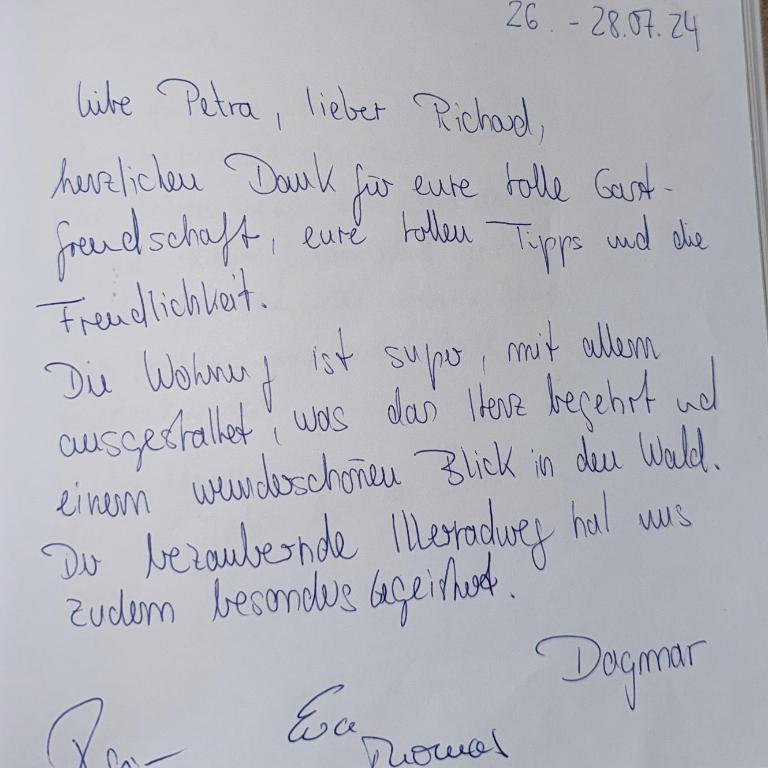 26. - 28.07.24
Liebe Petra, lieber Richard,
herzlichen Dank für eure tolle Gast-
freundschaft, eure tollen Tipps und die
Freundlichkeit.
Die Wohnung ist super, mit allem
ausgestattet, was das Herz begehrt und
einem wunderschönen Blick in den Wald.
Der bezaubernde Illerradweg hat uns
zudem besonders begeistert.
Dagmar
Eva
Thomas